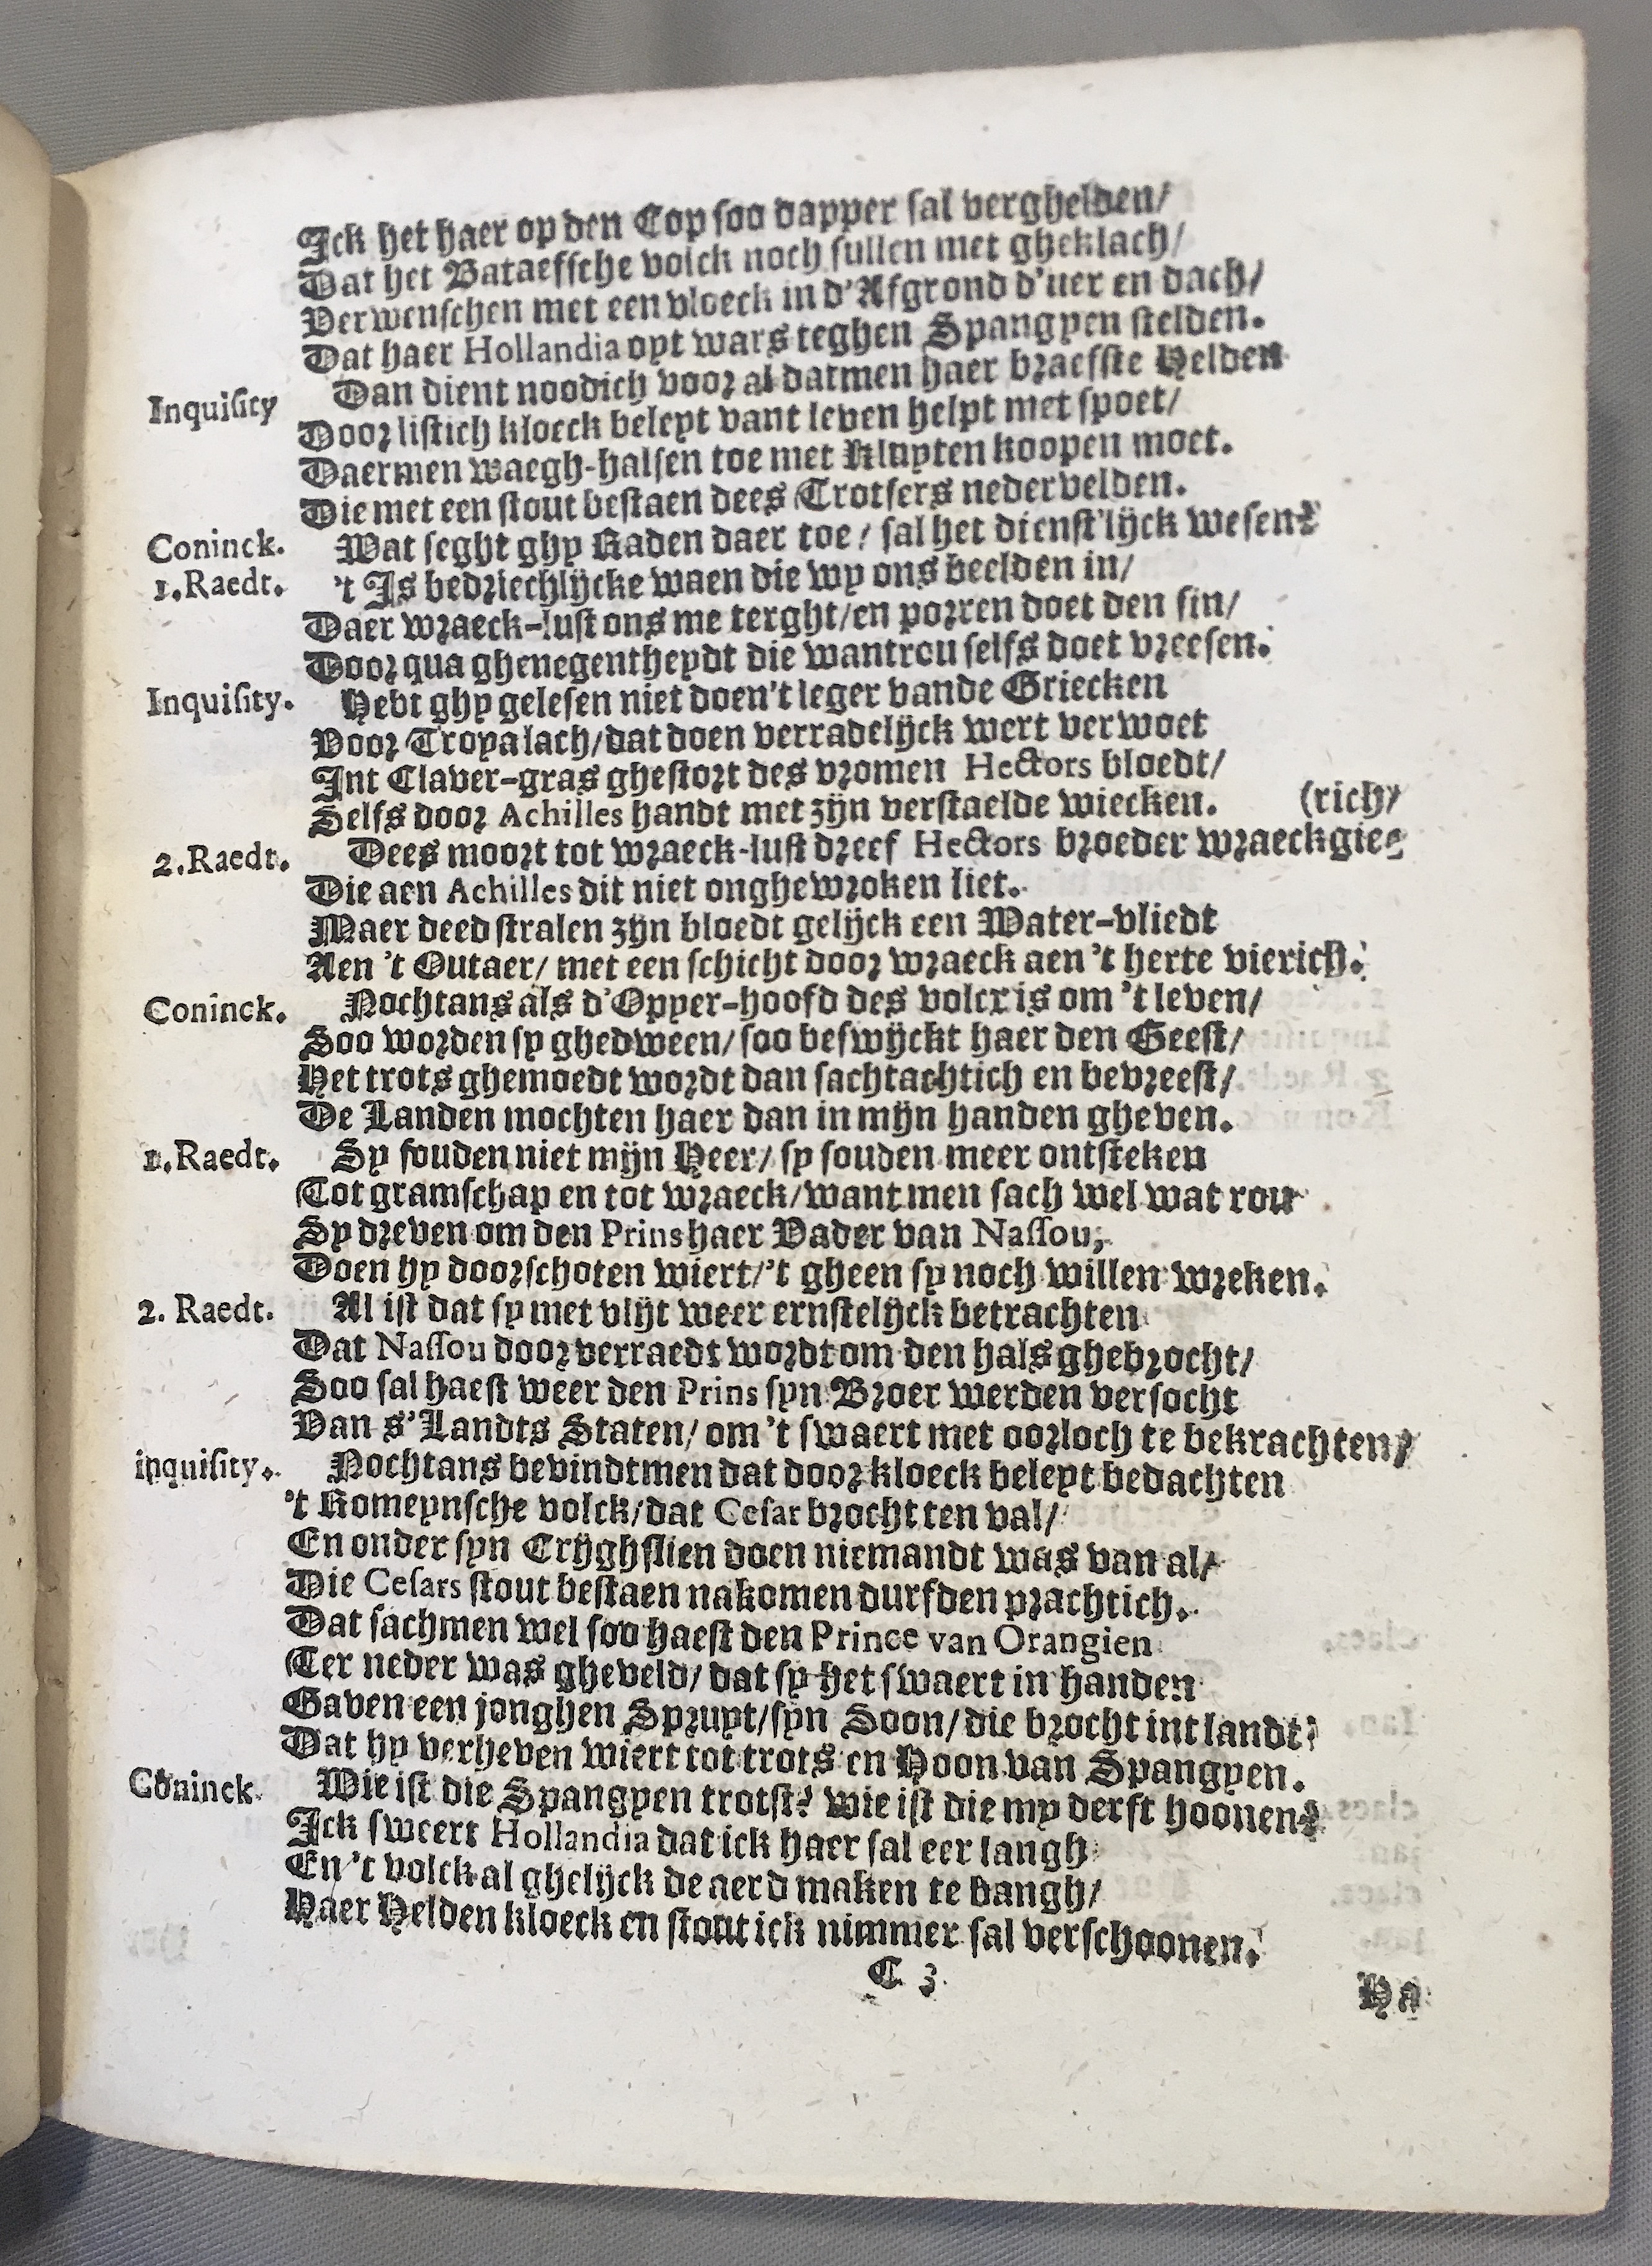 Ick het haer op den Cop soo dapper sal verghelden/
Dat het Bataefsche volck noch sullen met gheklach/
Verwenschen met een vloeck in d'Afgrond d'uer en dach/
Dat haer Hollandia oyt wars teghen Spangyen stelden.
Inquisity Dan dient noodich voor al datmen haer braefste Helden
Door listich kloeck beleyt vant leven helpt met spoet/
Daermen waegh-halsen toe met Kluyten koopen moet.
Die met een stout bestaen dees Trotsers nedervelden.
Coninck. Wat seght ghy Raden daer toe/ sal het dienst'lijck wesen?
1. Raedt. 't Is bedriechlijcke waen die wy ons beelden in/
Daer wraeck-lust ons me terght/en porren doet den sin/
Door qua ghenegentheydt die wantrou selfs doet vreesen.
Inquisity. Hebt ghy gelesen niet doen't leger vande Griecken
Voor Troya lach/dat doen verradelijck wert verwoet
Int Claver-gras ghestort des vromen Hectors bloedt/
Selfs door Achilles handt met zijn verstaelde wiecken. (rich/
2. Raedt. Dees moort tot wraeck-lust dreef Hectors broeder wraeckgie-
Die aen Achilles dit niet onghewroken liet.
Maer deed stralen zijn bloedt gelijck een Water-vliedt
Aen 't Outaer/ met een schicht door wraeck aen 't herte vierich.
Coninck. Nochtans als d'Opper-hoofd des volcx is om 't leven/
Soo worden sy ghedween/ soo beswijckt haer den Geest/
Het trots ghemoedt wordt dan sachtachtich en bevreest/
De Landen mochten haer dan in mijn handen gheven.
1. Raedt. Sy souden niet mijn Heer/ sy souden meer ontsteken
Tot gramschap en tot wraeck/want men sach wel wat rou
Sy dreven om den Prins haer Vader van Nassou,
Doen hy doorschoten wiert/'t gheen sy noch willen wreken.
2. Raedt. Al ist dat sy met vlijt weer ernstelijck betrachten
Dat Nassou door verraedt wordt om den hals ghebrocht/
Soo sal haest weer den Prins syn Broer werden versocht
Van s'Landts Staten/ om 't swaert met oorloch te bekrachten/
inquisity. Nochtans bevindtmen dat door kloeck beleyt bedachten
't Romeynsche volck/dat Cesar brocht ten val/
En onder syn Crijghslien doen niemandt was van al/
Die Cesars stout bestaen nakomen durfden prachtich.
Dat sachmen wel soo haest den Prince van Orangien
Ter neder was gheveld/ dat sy het swaert in handen
Gaven een jonghen Spruyt/syn Soon/die brocht int landt:
Dat hy verheven wiert tot trots en Hoon van Spangyen.
Coninck. Wie ist die Spangyen trotst? wie ist die my derft hoonen?
Ick sweert Hollandia dat ick haer sal eer langh
En 't volck al ghelijck de aerd maken te bangh/
Haer Helden kloeck en stout ick nimmer sal verschoonen.
C 3
Ha